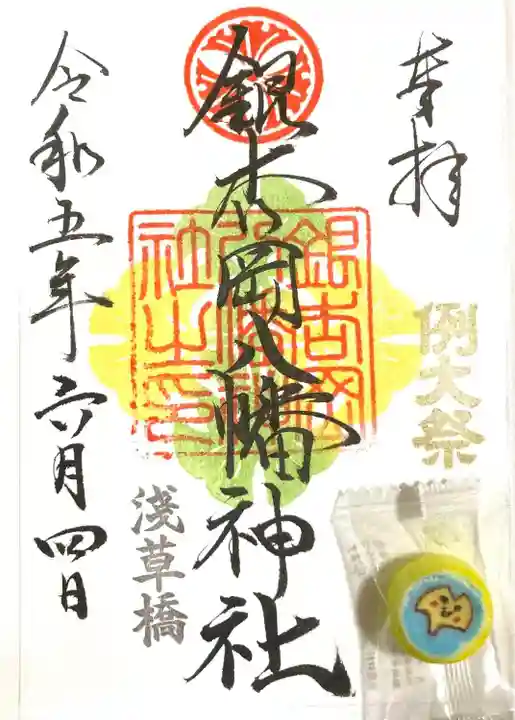 奉拝
例大祭
銀杏岡八幡神社
銀杏岡八幡神社之印
浅草橋
令和五年六月四日